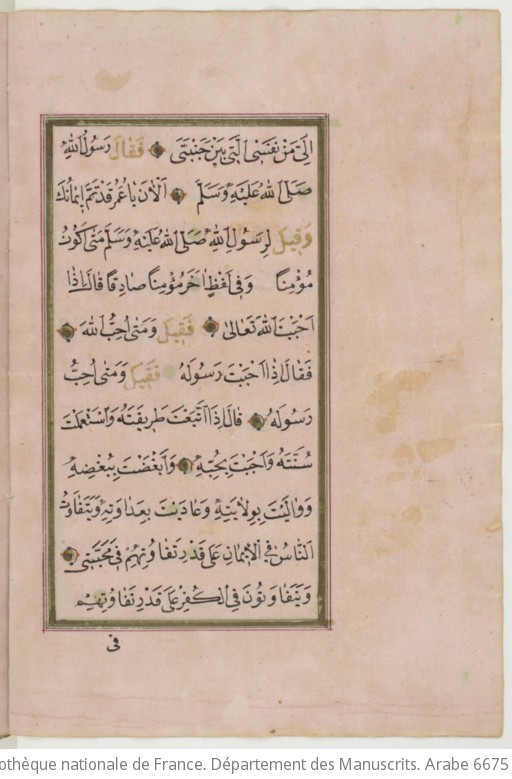 اِلَيَّ مِنْ نَفْسِي الَّتِي بَيْنَ جَنْبَيَّ فَقَالَ رَسُولُ اللهِ
صَلَّى اللهُ عَلَيْهِ وَسَلَّمَ اَلْاٰنَ يَا عُمَرُ قَدْ تَمَّ اِيمَانُكَ
وَقِيلَ لِرَسُولِ اللهِ صَلَّى اللهُ عَلَيْهِ وَسَلَّمَ مَتٰى اَكُونُ
مُؤْمِنًا وَفِي لَفْظٍ اٰخَرَ مُؤْمِنًا صَادِقًا قَالَ اِذَا
اَحْبَبْتَ اللهَ تَعَالٰى فَقِيلَ وَمَتٰى اُحِبُّ اللهَ
فَقَالَ اِذَا اَحْبَبْتَ رَسُولَهُ فَقِيلَ وَمَتٰى اُحِبُّ
رَسُولَهُ قَالَ اِذَا اتَّبَعْتَ طَرِيقَتَهُ وَاسْتَعْمَلْتَ
سُنَّتَهُ وَاَحْبَبْتَ بِحُبِّهِ وَاَبْغَضْتَ بِبُغْضِهِ
وَوَالَيْتَ بِوِلَايَتِهِ وَعَادَيْتَ بِعَدَاوَتِهِ وَيَتَفَاوَتُ
النَّاسُ فِي الْاِيمَانِ عَلٰى قَدْرِ تَفَاوُتِهِمْ فِي مَحَبَّتِي
وَيَتَفَاوَتُونَ فِي الْكُفْرِ عَلٰى قَدْرِ تَفَاوُتِهِمْ
فِي
othèque nationale de France. Département des Manuscrits. Arabe 6675